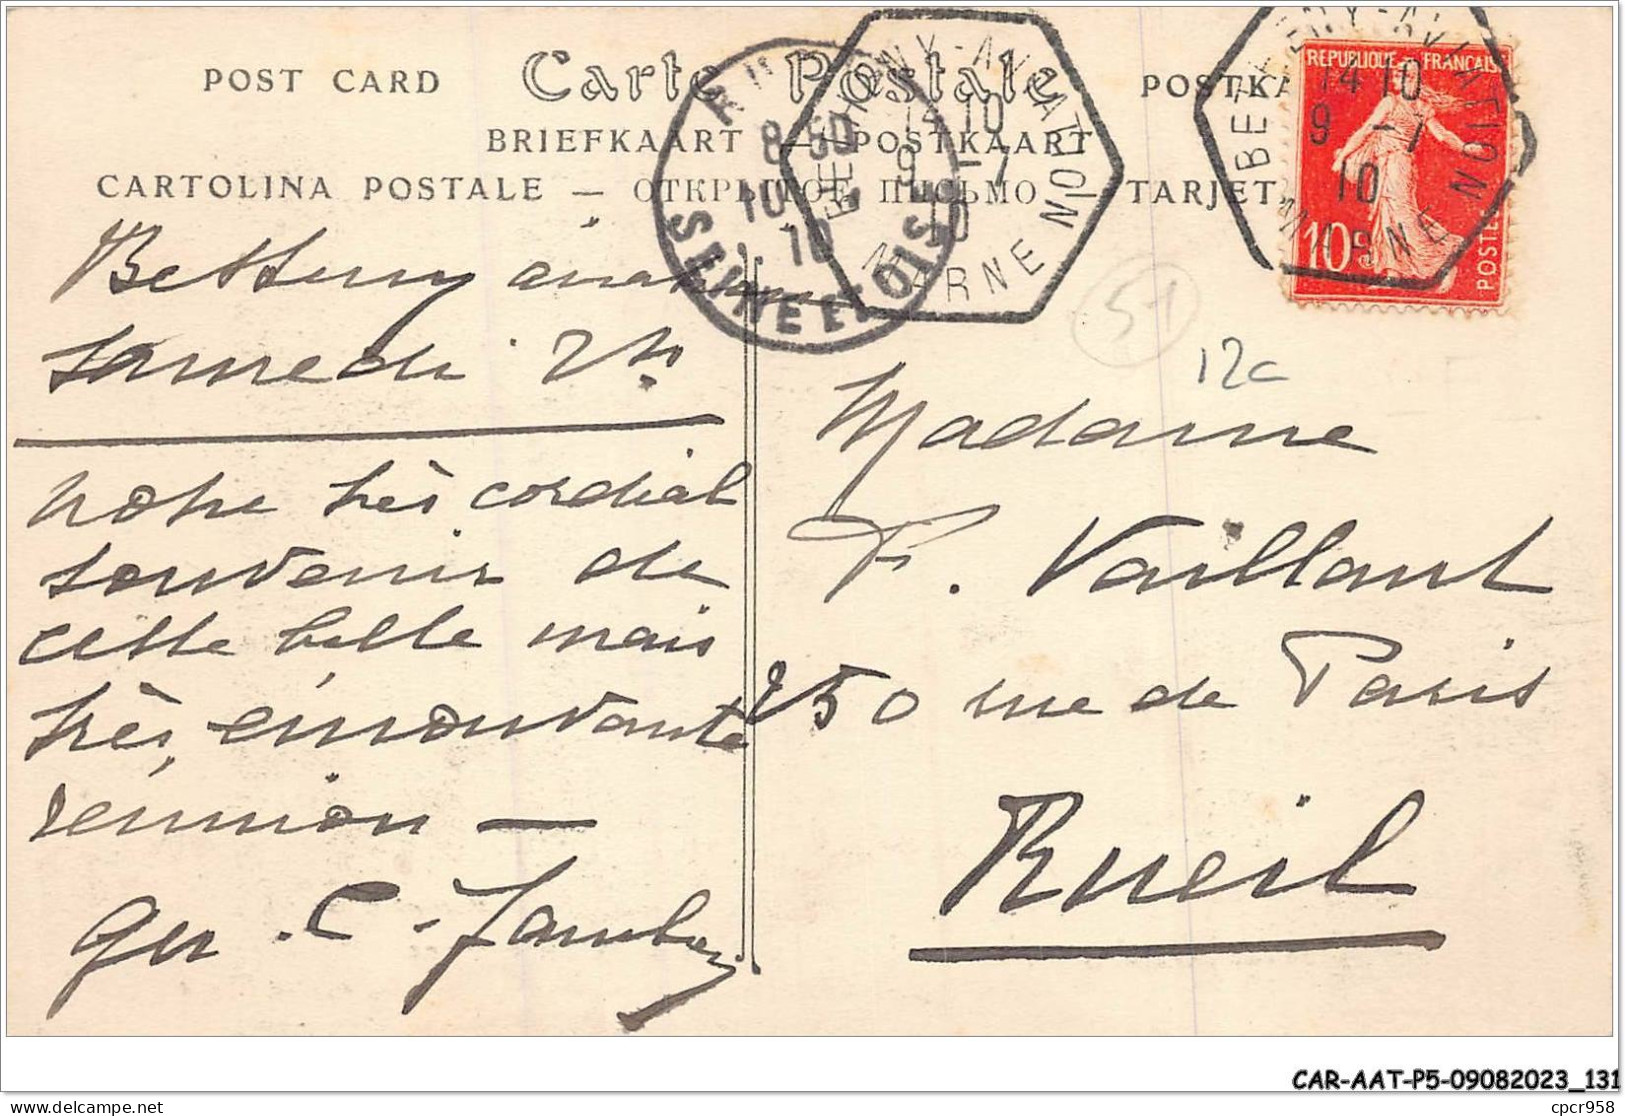 POST CARD Carte Postale POSTKA
BRIEFKAART — POSTKAART
CARTOLINA POSTALE — ОТКРЫТОЕ ПИСЬМО — TARJET
8 50
10
10
SEINE ET OISE
BETHENY-AVIATION
14 10
9 -7
10
MARNE
BETHENY-AVIATION
14 10
9 -7
10
MARNE
REPUBLIQUE FRANCAISE
10c
POSTES
51
12c
Betheny aviation
Samedi 2h
notre très cordial
souvenir de
cette belle mais
très émouvante
réunion —
Madame
F. Vaillant
250 rue de Paris
Rueil
CAR-AAT-P5-09082023_131
cpcr958